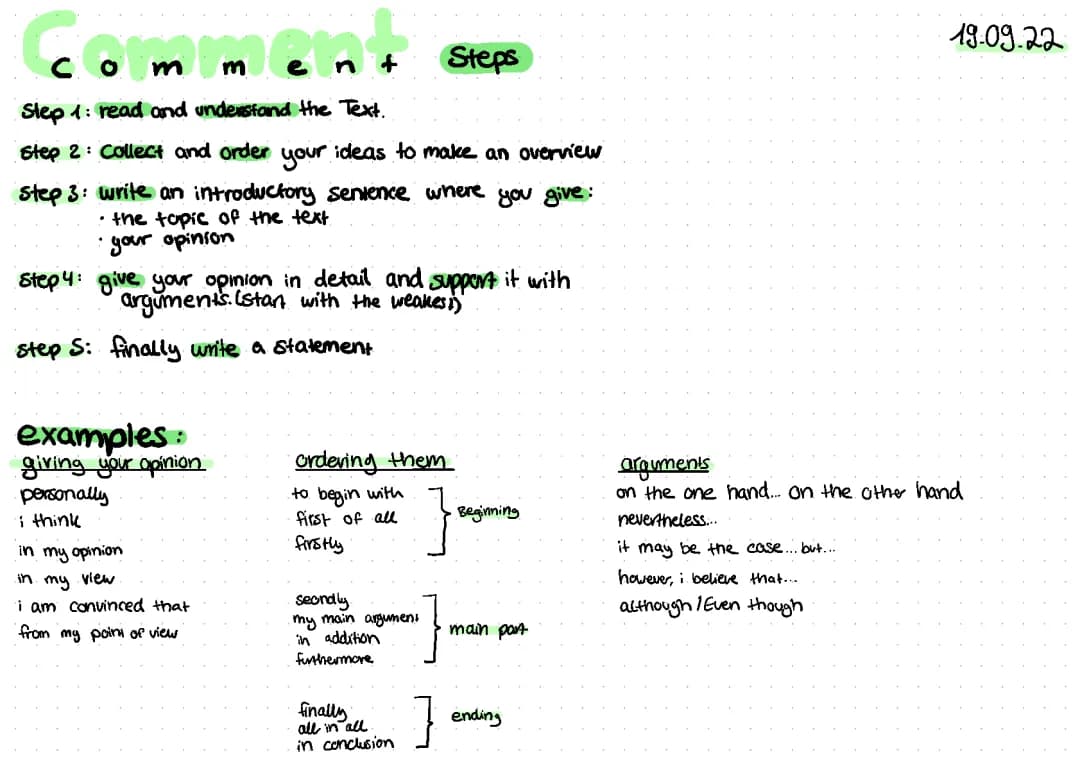 Comment
Comment Steps
19.09.22
Step 1: read and understand the Text.
Step 2: Collect and order your ideas to make an overview
Step 3: write an introductory sentence where you give:
· the topic of the text
· your opinion
Step 4: give your opinion in detail and support it with
arguments. (start with the weakest)
Step 5: finally write a statement
examples:
giving your opinion
personally
i think
in my opinion
in my view
i am convinced that
from my point of view
ordering them
to begin with
first of all
firstly
Beginning
seondly
my main argument
in addition
furthermore
main part
finally
all in all
in conclusion
ending
arguments
on the one hand... on the other hand
nevertheless...
it may be the case... but...
however, i believe that...
although / Even though